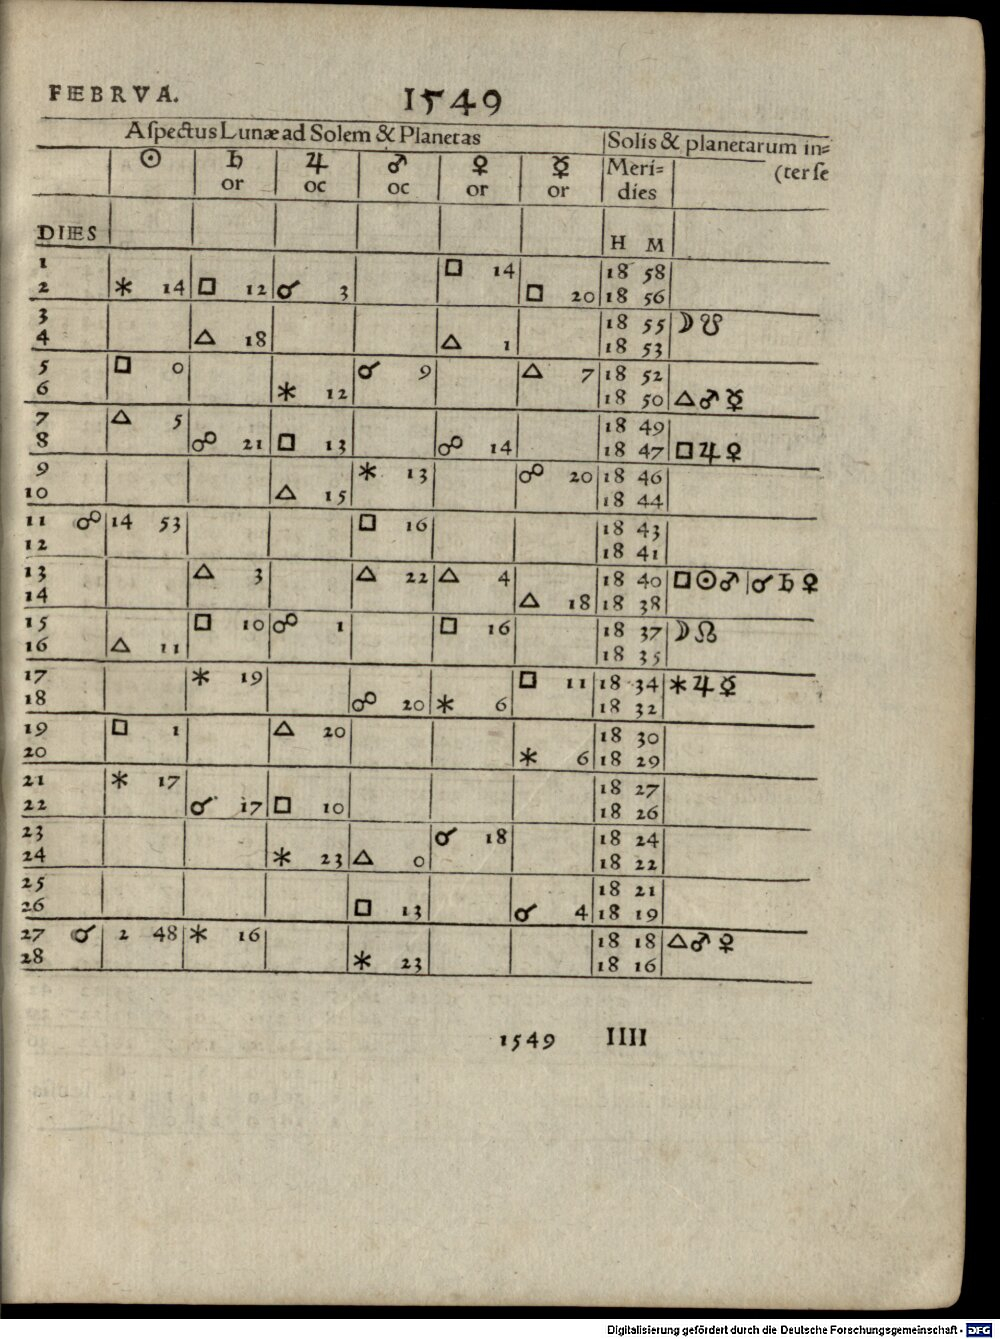 FEBRVA. 1549
Aſpectus Lunæ ad Solem & Planetas Solis & planetarum in=
☉ ♄ ♃ ♂ ♀ ☿ Meri= (ter ſe
or oc oc or or dies
DIES H M
1 □ 14 18 58
2 ✶ 14 □ 12 ☌ 3 □ 20 18 56
3 18 55 ☽ ☋
4 △ 18 △ 1 18 53
5 □ 0 ☌ 9 △ 7 18 52
6 ✶ 12 18 50 △ ♂ ☿
7 △ 5 18 49
8 ☍ 21 □ 13 ☍ 14 18 47 □ ♃ ♀
9 ✶ 13 ☍ 20 18 46
10 △ 15 18 44
11 ☍ 14 53 □ 16 18 43
12 18 41
13 △ 3 △ 22 △ 4 18 40 □ ☉ ♂ | ☌ ♄ ♀
14 △ 18 18 38
15 □ 10 ☍ 1 □ 16 18 37 ☽ ☊
16 △ 11 18 35
17 ✶ 19 □ 11 18 34 ✶ ♃ ☿
18 ☍ 20 ✶ 6 18 32
19 □ 1 △ 20 18 30
20 ✶ 6 18 29
21 ✶ 17 18 27
22 ☌ 17 □ 10 18 26
23 ☌ 18 18 24
24 ✶ 23 △ 0 18 22
25 18 21
26 □ 13 ☌ 4 18 19
27 ☌ 2 48 ✶ 16 18 18 △ ♂ ♀
28 ✶ 23 18 16
1549 IIII
Digitalisierung gefördert durch die Deutsche Forschungsgemeinschaft - DFG